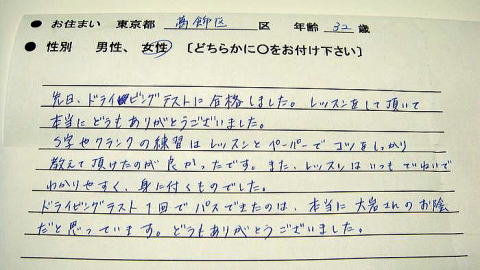 ● お住まい 東京都 葛飾区 区 年齢 32 歳
● 性別 男性、女性 〔どちらかに○をお付け下さい〕
先日、ドライビングテストに合格しました。レッスンをして頂いて
本当にどうもありがとうございました。
S字やクランクの練習はレッスンとペーパーでコツをしっかり
教えて頂けたのが良かったです。また、レッスンはいつもていねいで
わかりやすく、身に付くものでした。
ドライビングテスト1回でパスできたのは、本当に大岩さんのお陰
だと思っています。どうもありがとうございました。